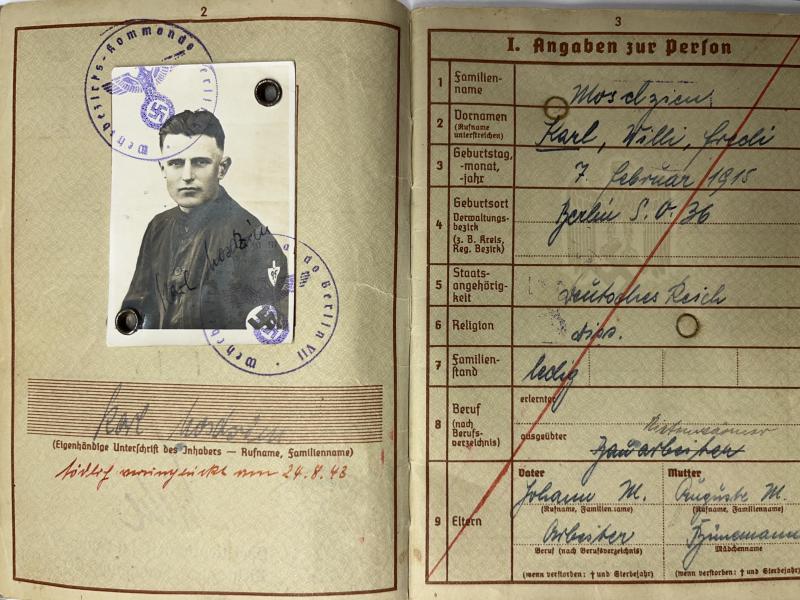 2
Wehrbezirks-Kommando Berlin
Karl
Wehrbezirks-Kommando Berlin VII
Karl
(Eigenhändige Unterschrift des Inhabers — Rufname, Familienname)
tödlich verunglückt am 24.8.43
3
I. Angaben zur Person
1 Familien-
name
2 Vornamen
(Rufname
unterstreichen)
Karl, Willi, Fredi
3 Geburtstag,
-monat,
-jahr
7. Februar 1915
4 Geburtsort
Verwaltungs-
bezirk
(z. B. Kreis,
Reg. Bezirk)
Berlin S.O. 36
5 Staats-
angehörig-
keit
Deutsches Reich
6 Religion
diss.
7 Familien-
stand
ledig
8 Beruf
(nach
Berufs-
verzeichnis)
erlernter
ausgeübter
Bauarbeiter
9 Eltern
Vater
Mutter
Johann M.
Auguste M.
(Rufname, Familienname)
(Rufname, Familienname)
Arbeiter
Beruf (nach Berufsverzeichnis)
Mädchenname
(wenn verstorben: † und Sterbejahr)
(wenn verstorben: † und Sterbejahr)